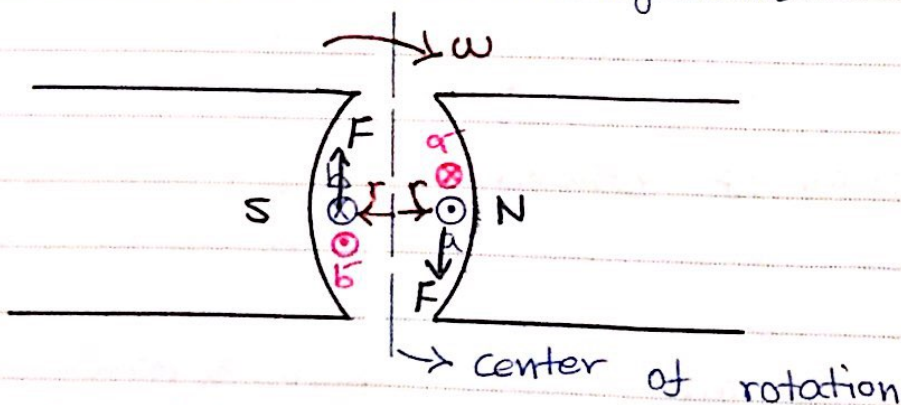 ω
F
a⁻
b
r r
S ⊗ ⊙ N
a
b⁻
F
center of rotation